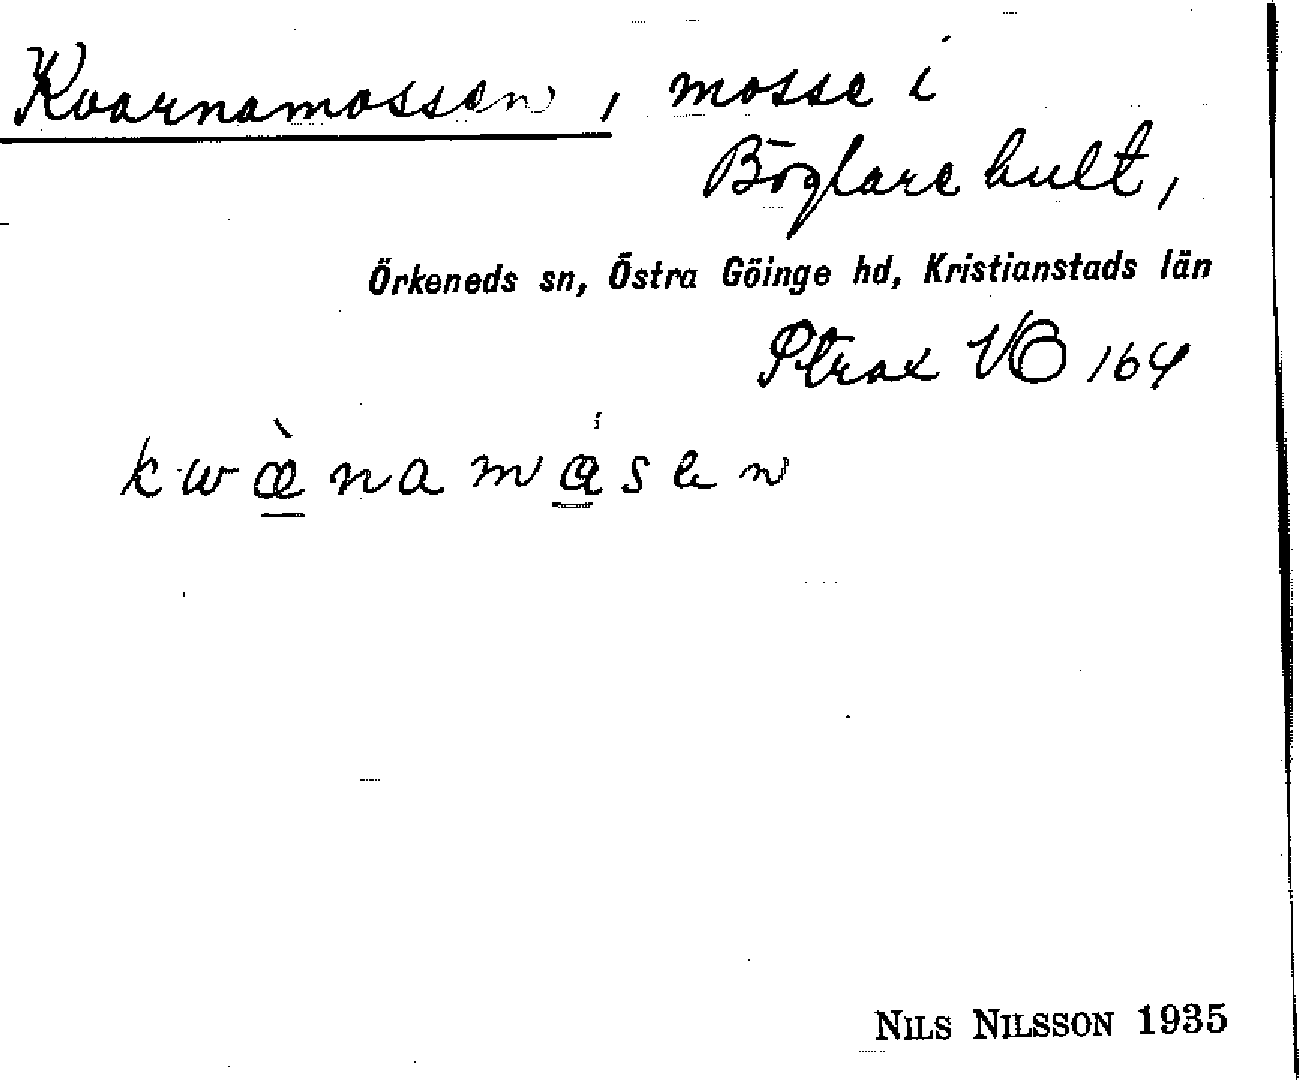 Kvarnamossen, mosse i
Böglarehult,
Örkeneds sn, Östra Göinge hd, Kristianstads län
164
kwæ̀namåsen
NILS NILSSON 1935